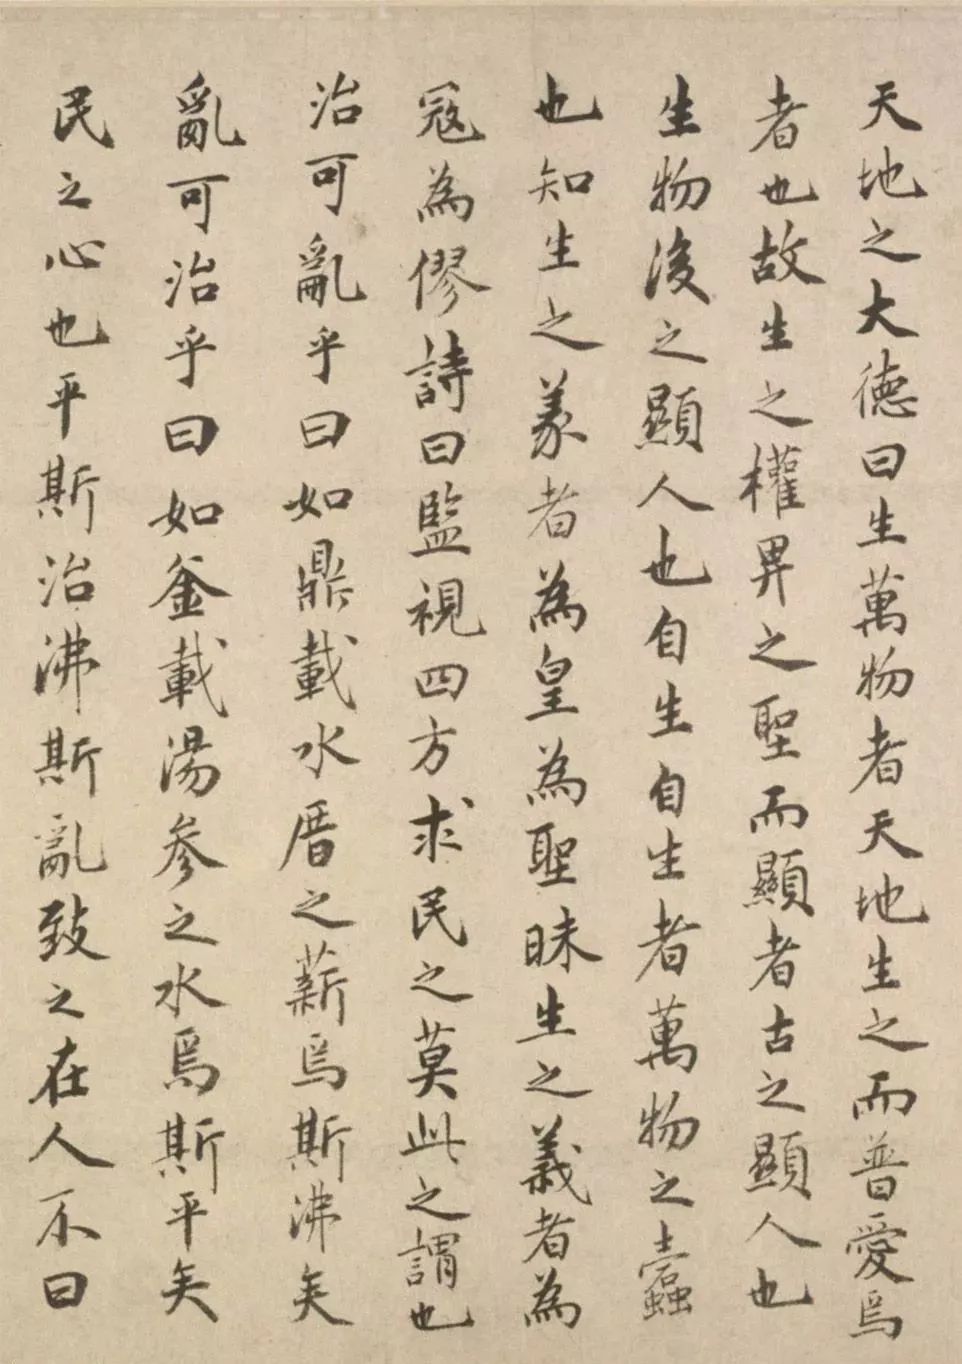 天地之大德曰生萬物者天地生之而普愛焉
者也故生之權畀之聖而顯者古之顯人也
生物後之顯人也自生自生者萬物之蠹
也知生之義者為皇為聖昧生之義者為
寇為僇詩曰監視四方求民之莫此之謂也
治可亂乎曰如鼎載水厝之薪焉斯沸矣
亂可治乎曰如釜載湯參之水焉斯平矣
民之心也平斯治沸斯亂致之在人不曰